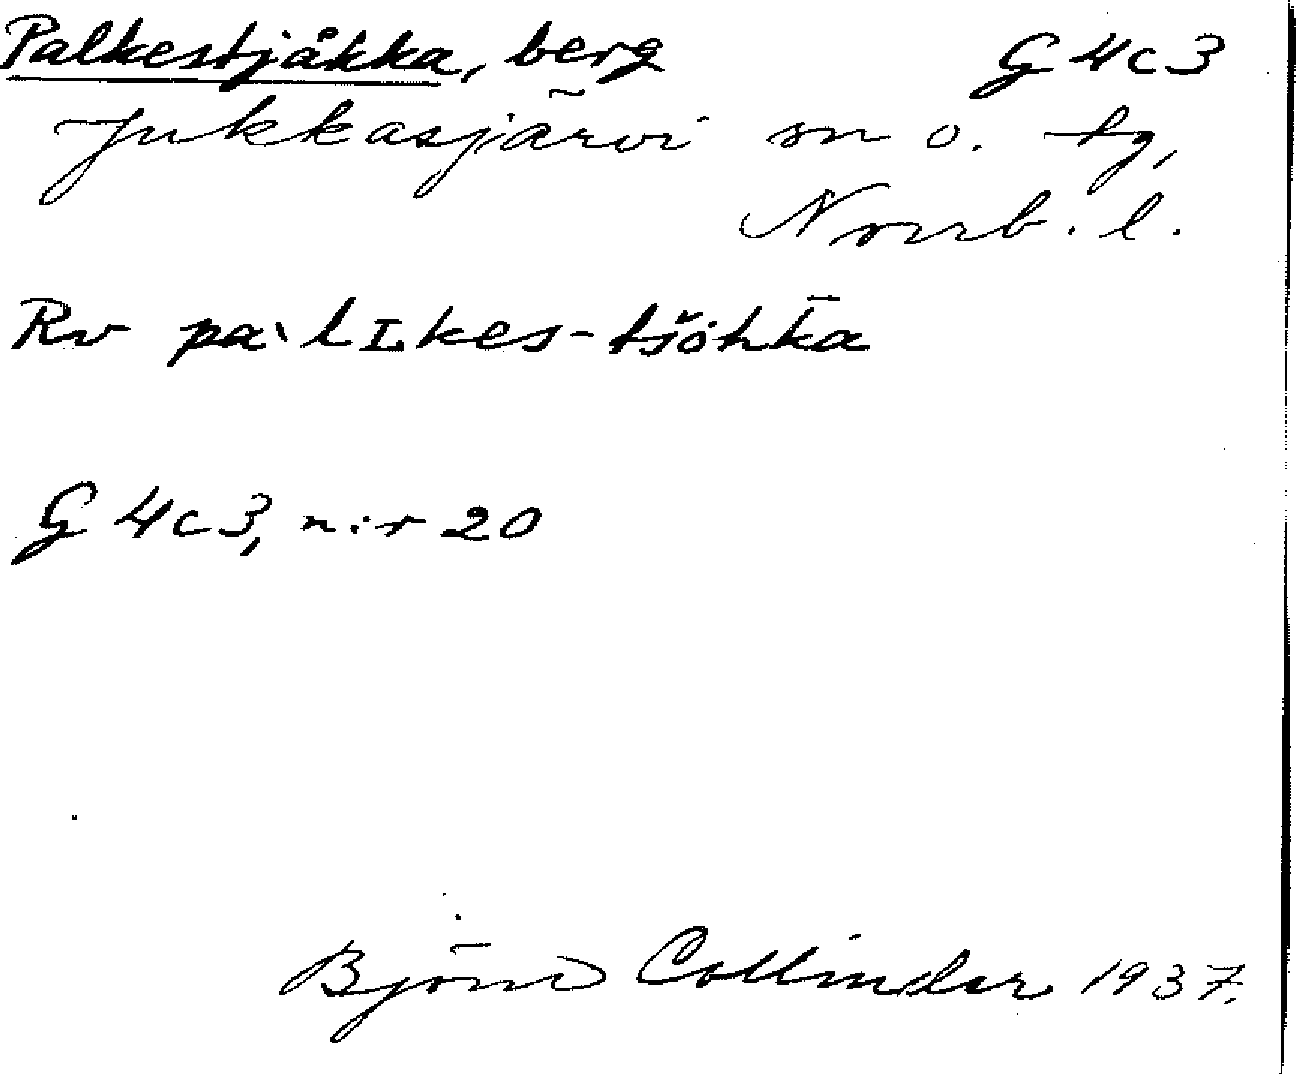 Palkestjåkka, berg G 4c3
Jukkasjärvi sn o. tg,
Norrb. l.
Rv pa̔lʟkes-tšŏhk̄a
G 4c3, n:r 20
Björn Collinder 1937.